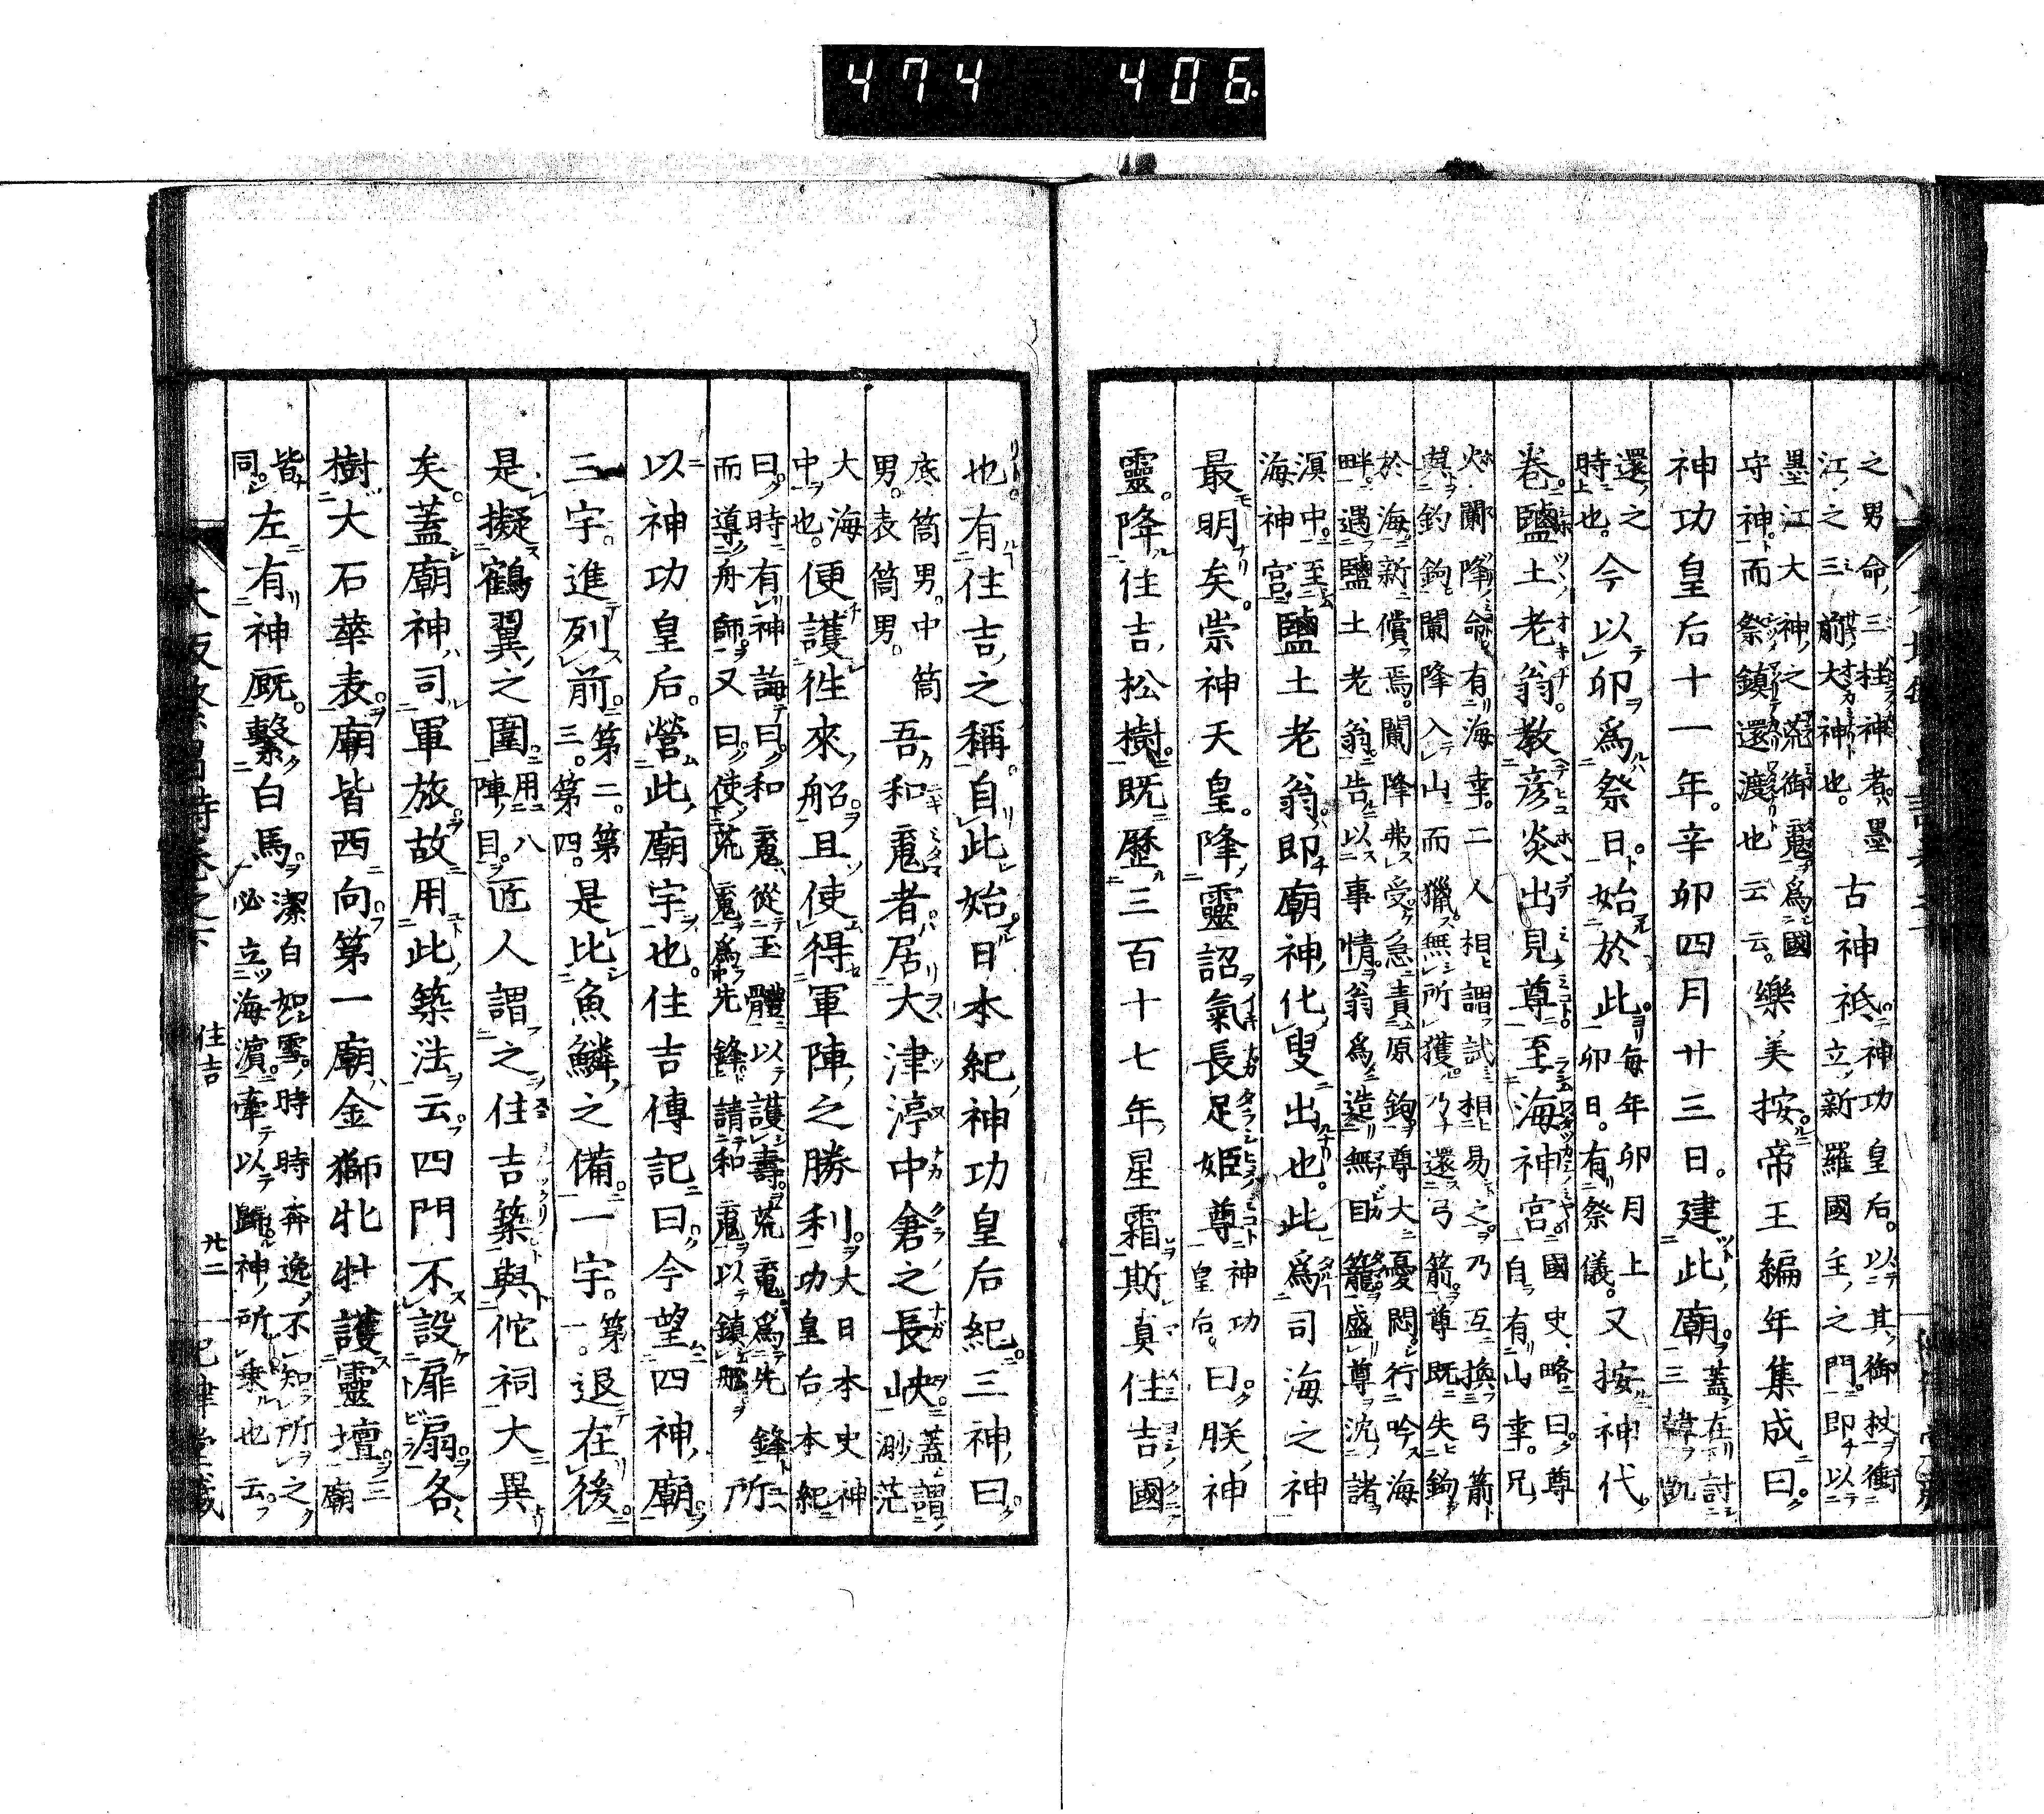 474 406
之男命三柱神者墨
江之三前大神也
古神祇神功皇后以其御杖衝
立新羅國主之門即以
墨江大神之荒御䰟為國
守神而祭鎮還渡也云云
樂美按帝王編年集成曰
神功皇后十一年辛卯四月廿三日建此廟蓋在討
三韓凱
還之
時也
今以卯為祭日始於此每年卯月上
卯日有祭儀
又按神代
卷鹽土老翁教彥炎出見尊至海神宮國史略曰尊
自有山幸兄
火闌降命有海幸二人相謂試相易之乃互換弓箭
與釣鉤闌降入山而獵無所獲乃還弓箭尊既失鉤
於海新償焉闌降弗受急責原鉤尊大憂悶行吟海
畔遇鹽土老翁告以事情翁為造無目籠盛尊沈諸
溟中至
海神宮
鹽土老翁即廟神化叟出也此為司海之神
最明矣崇神天皇降靈詔氣長足姬尊神功
皇后
曰朕神
靈降住吉松樹既歷三百十七年星霜斯真住吉國
也有住吉之稱自此始日本紀神功皇后紀三神曰
底筒男中筒
男表筒男
吾和䰟者居大津渟中倉之長峽蓋謂
渺茫
大海
中也
便護往來船且使得軍陣之勝利大日本史神
功皇后本紀
曰時有神誨曰和䰟從玉體以護壽荒䰟為先鋒
而導舟師又曰使荒䰟為先鋒請和䰟以鎮船
所
以神功皇后營此廟宇也住吉傳記曰今望四神廟
三宇進列前第二第
三第四
是比魚鱗之備一宇第
一
退在後
是擬鶴翼之圍用八
陣目
匠人謂之住吉築與佗祠大異
矣蓋廟神司軍旅故用此築法云四門不設扉扇各
樹大石華表廟皆西向第一廟金獅牝牡護靈壇三
廟
皆
同
左有神厩繫白馬潔白如雪時時奔逸不知所之
必立海濱牽以歸神所乘也云
住吉
廿二